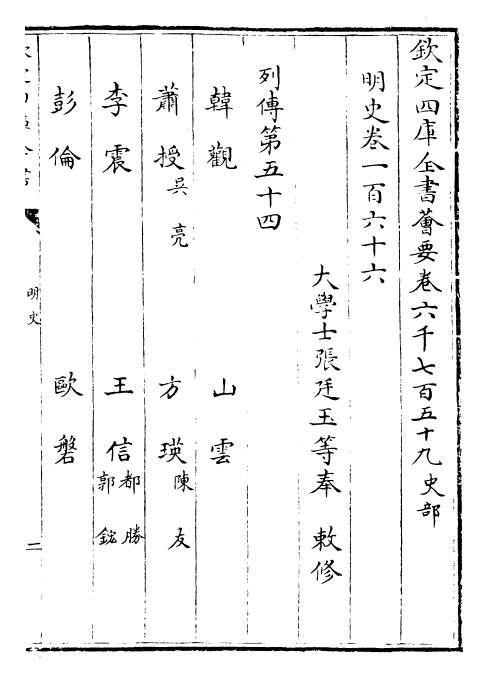 欽定四庫全書薈要卷六千七百五十九史部
明史卷一百六十六
大學士張廷玉等奉 敕修
列傳第五十四
韓觀 山雲
蕭授吳亮 方瑛陳友
李震 王信都勝郭鋐
彭倫 歐磐
明史 二